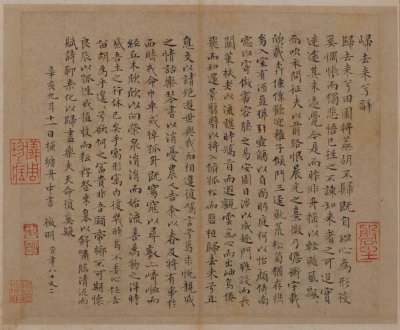 歸去來兮辭
歸去來兮田園將蕪胡不歸既自以心為形役
奚惆悵而獨悲悟已往之不諫知來者之可追實
迷途其未遠覺今是而昨非舟搖搖以輕颺風飄飄
而吹衣問征夫以前路恨晨光之熹微乃瞻衡宇載
欣載奔僮僕歡迎稚子候門三逕就荒松菊猶存攜
幼入室有酒盈樽引壺觴以自酌眄庭柯以怡顏倚南
窗以寄傲審容膝之易安園日涉以成趣門雖設而長
關策扶老以流憩時矯首而遐觀雲無心而出岫鳥倦
飛而知還景翳翳以將入撫孤松而盤桓歸去來兮請
息交以絕遊世與我而相遺復駕言兮焉求悅親戚
之情話樂琴書以消憂農人告余以春及將有事於
西疇或命巾車或棹孤舟既窈窕以尋壑亦崎嶇而
經丘木欣欣以向榮泉涓涓而始流善萬物之得時
感吾生之行休已矣乎寓形宇內復幾時曷不委心任去
留胡為乎遑遑兮欲何之富貴非吾願帝鄉不可期懷
良辰以孤往或植杖而耘耔登東皋以舒嘯臨清流而
賦詩聊乘化以歸盡樂夫天命復奚疑
辛亥九月十一日橫塘舟中書 徵明 時年八十又二